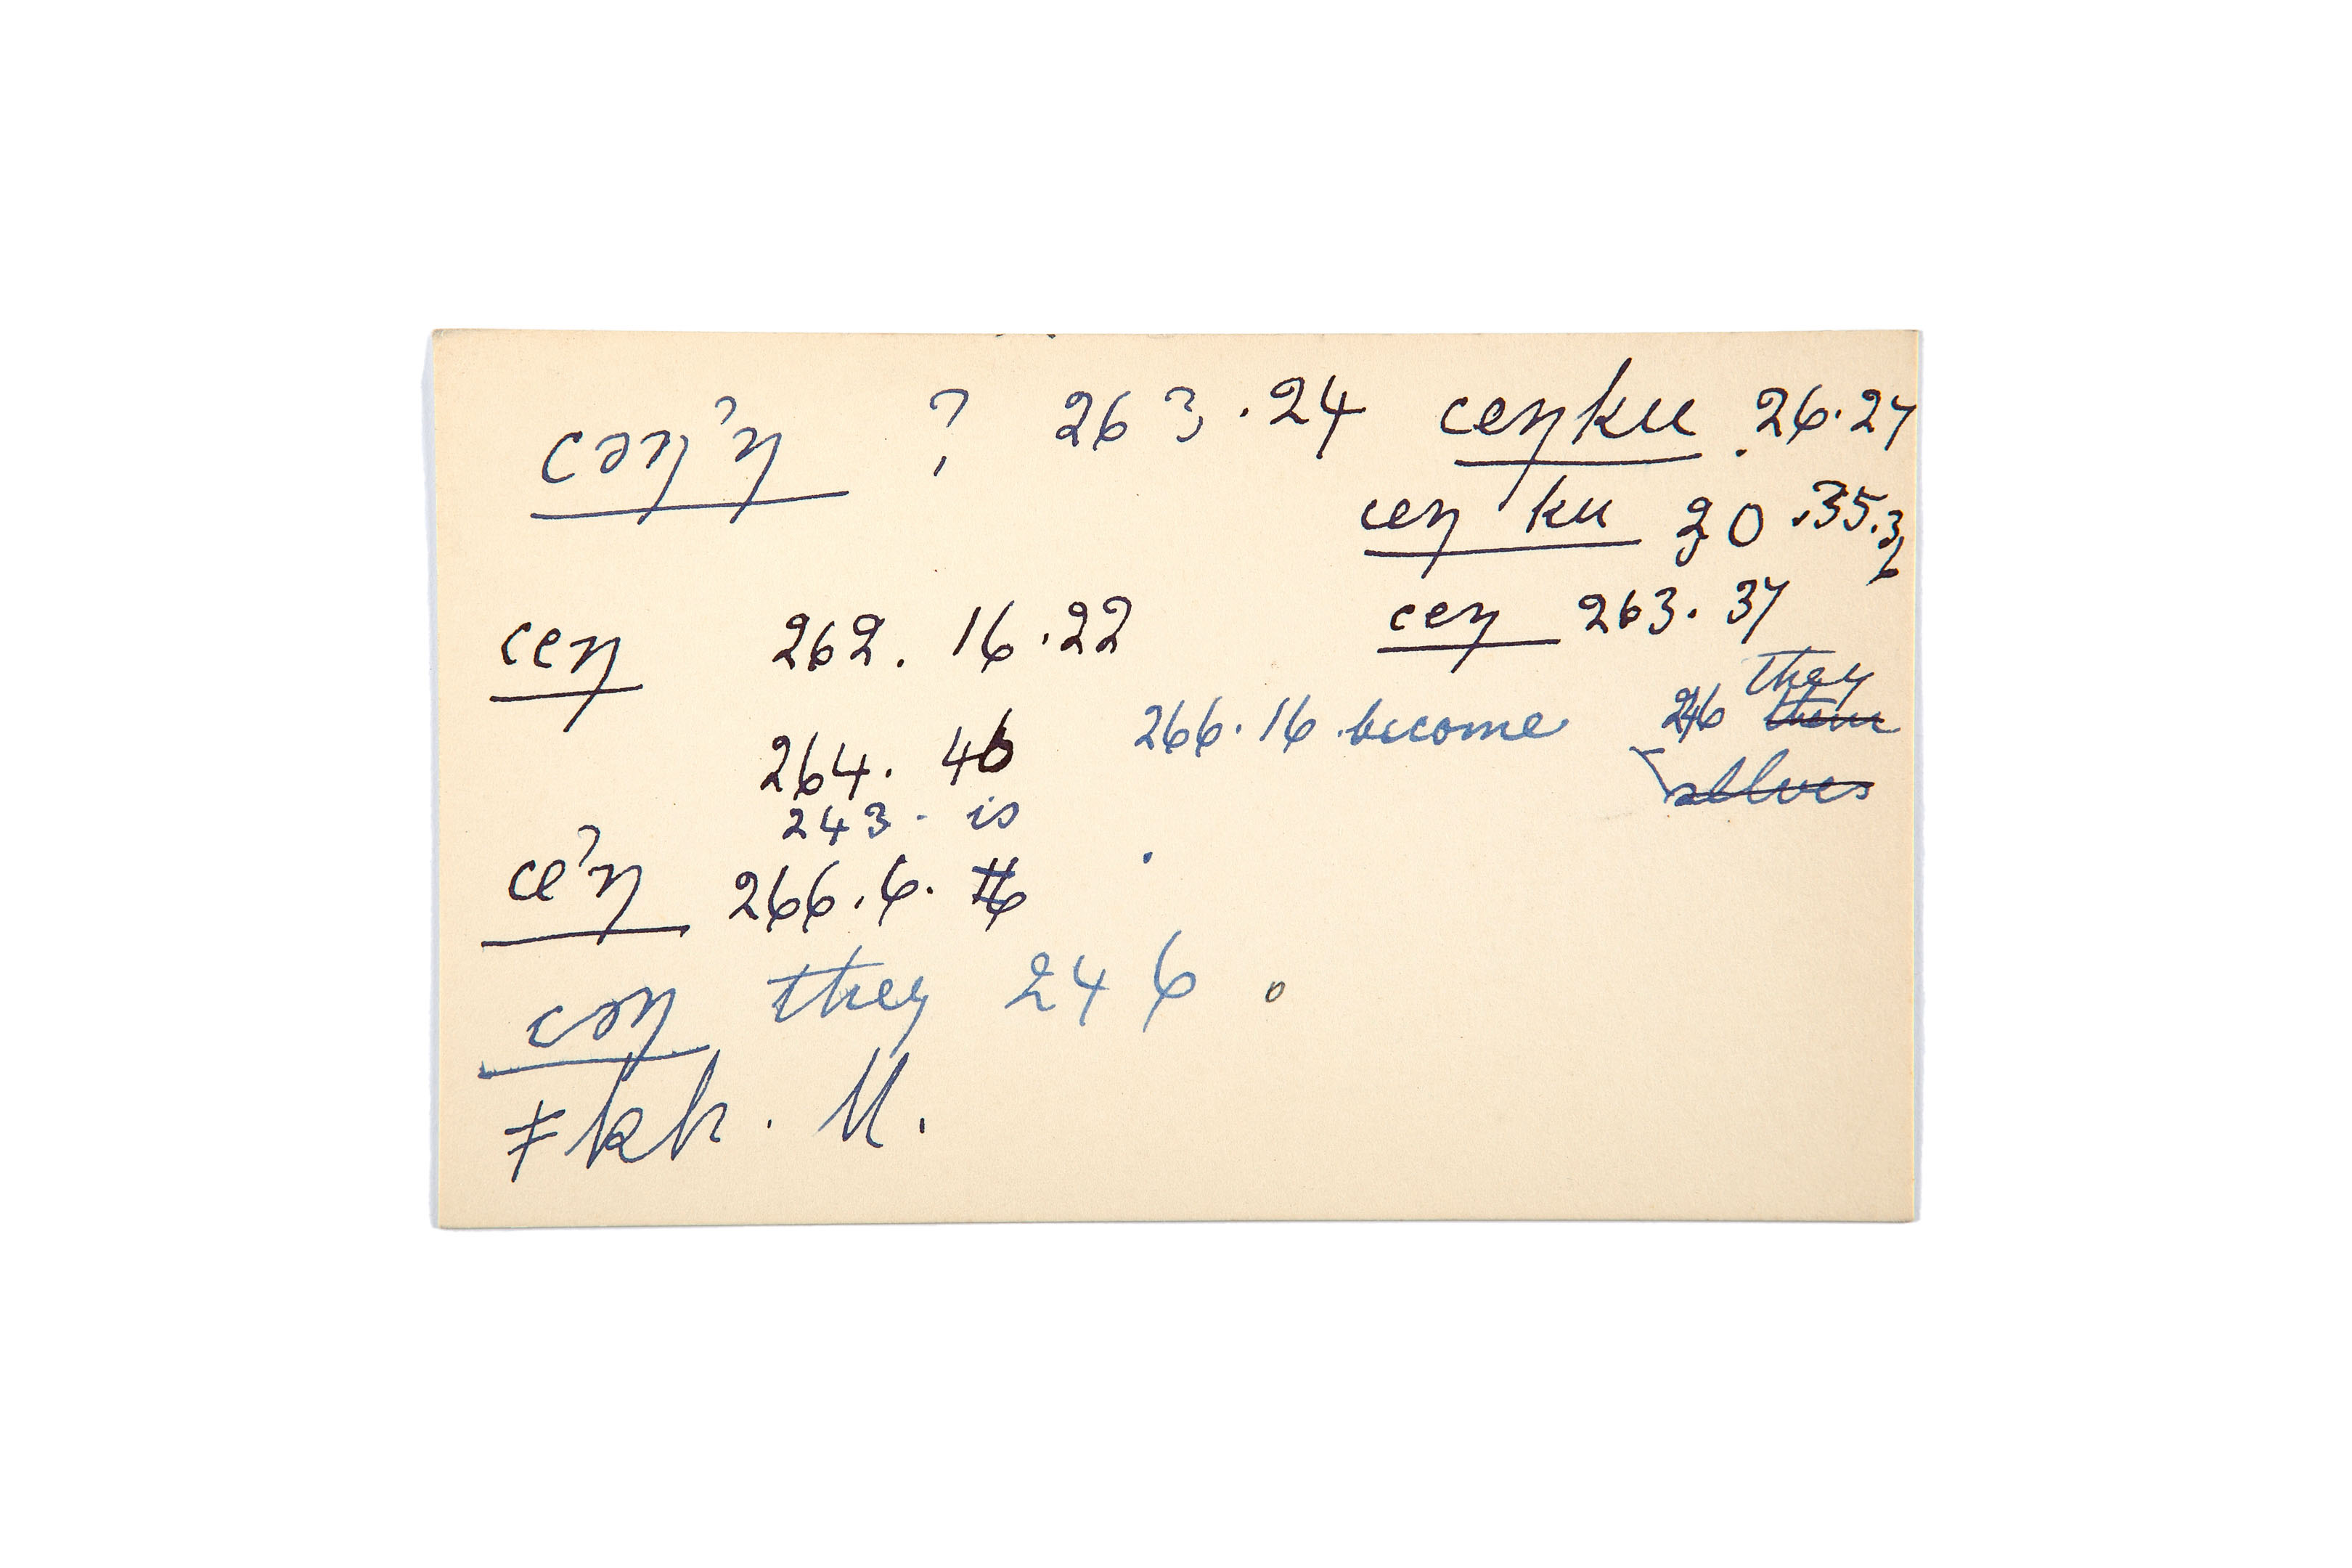 cəŋ'ŋ ? 263.24 ceŋku .26.27
ceŋ ku 20.35.36
ceŋ 262. 16.22 ceŋ 263. 37
264. 46 266.16 become 246 they them
selves
243. is
ce'ŋ 266.6. 16
cəŋ they 246.
≠kh. U.